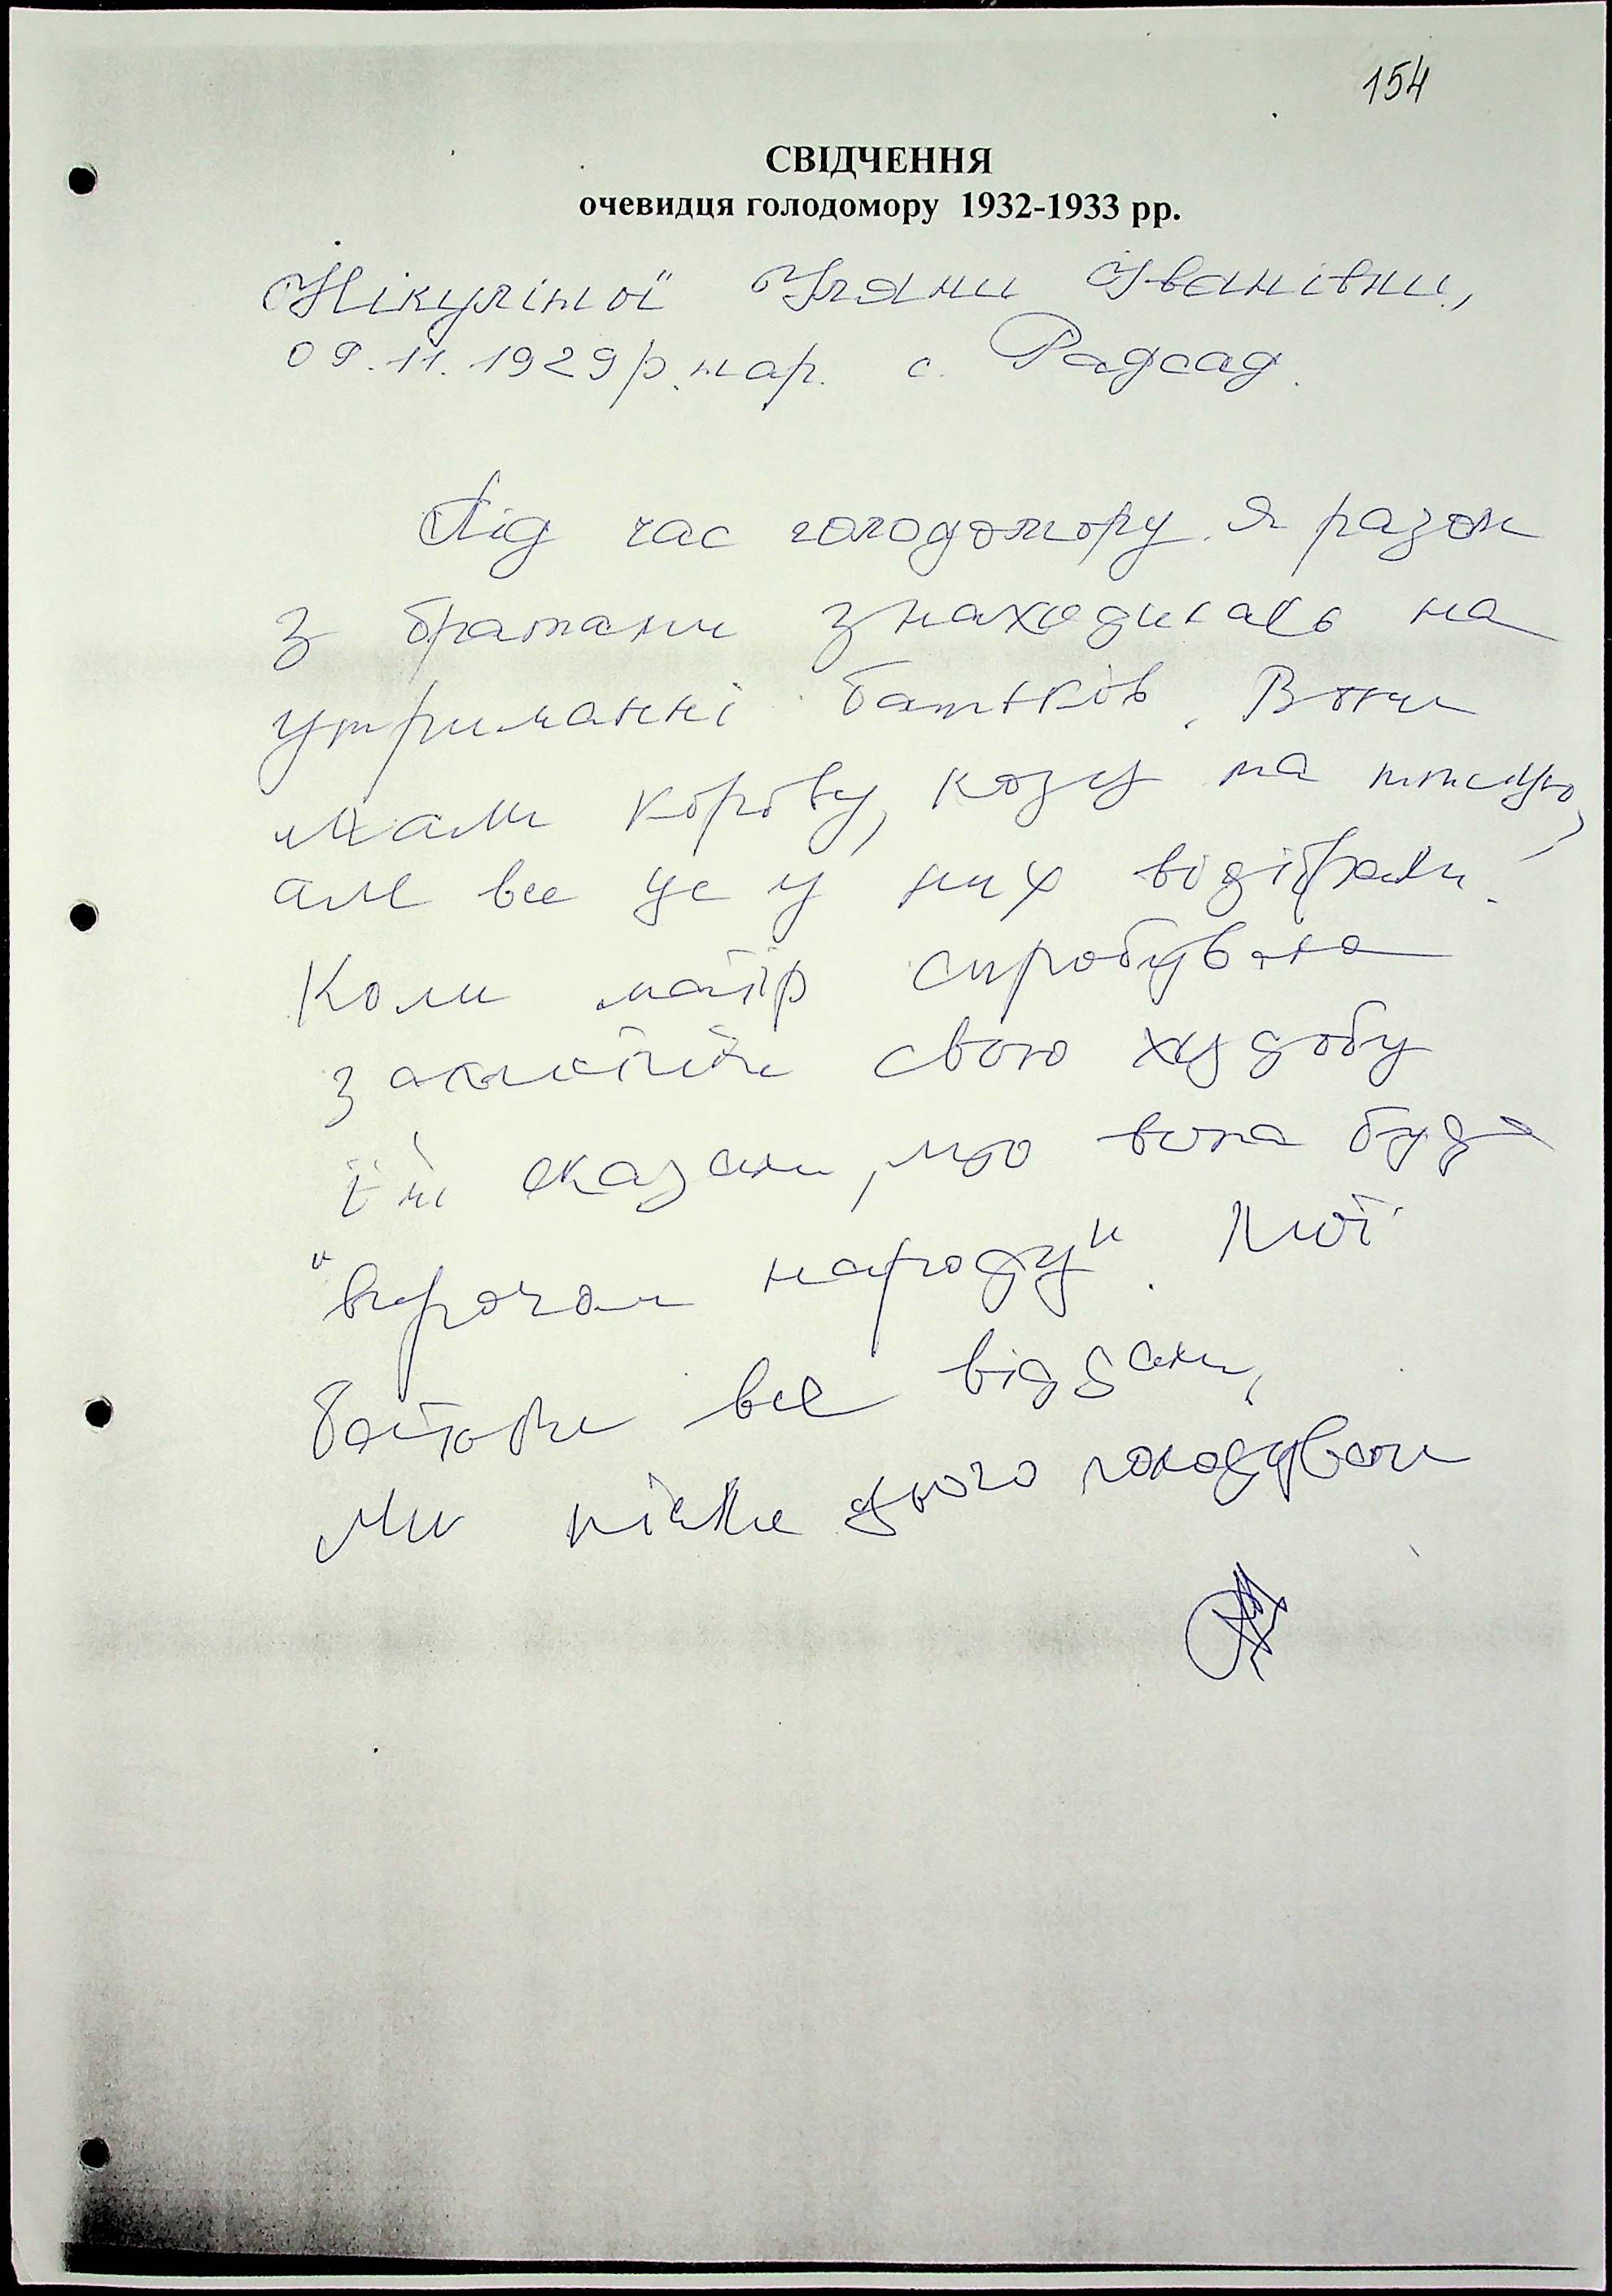 154
СВІДЧЕННЯ
очевидця голодомору 1932-1933 рр.
Нікуліної Уляни Іванівни,
09.11.1929 р. нар. с. Радсад.
Під час голодомору я разом
з братами знаходилась на
утриманні батьків. Вони
мали корову, козу та птицю,
але все це у них відібрали.
Коли матір спробувала
захистити свою худобу
їй сказали, що вона буде
"ворогом народу". Мої
батьки все віддали,
Ми після цього голодували